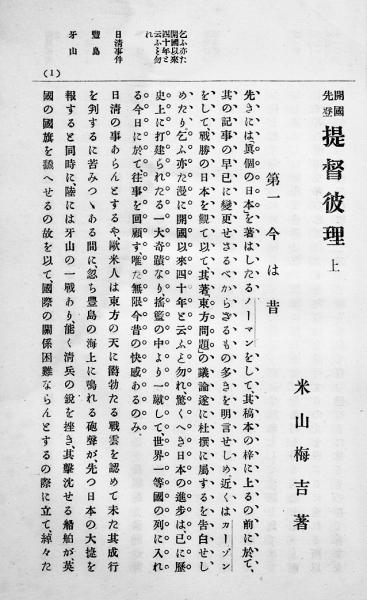 開國
先登
提督彼理 上
米山梅吉著
第一 今は昔
先きには『眞個の日本』を著はしたるノーマンをして、其稿本の梓に上るの前に於て、
其の記事の早已に變更せさるべからざるもの多きを明言せしめ、近くはカーゾン
をして、戰勝の日本を觀て以て、其著『東方問題』の議論遂に杜撰に屬するを告白せし
めたり、乞ふ亦た漫に開國以來四十年と云ふヿ勿れ、驚くへき日本の進步は、已に歷
史上に打建られたる一大奇蹟なり、搖籃の中より一蹴して、世界一等國の列に入れ
る今日に於て、往事を回顧す、唯た無限今昔の快感あるのみ。
日清の事あらんとするや、歐米人は東方の天に滃勃たる戰雲を認めて未た其成行
を判するに苦みつゝある間に、忽ち豐島の海上に鳴れる砲聲が、先つ日本の大捷を
報すると同時に、陸には牙山の一戰あり、能く淸兵の銳を挫き、其擊沈せる船舶が、英
國の國旗を飜へせるの故を以て、國際の關係困難ならんとするの際に立て、綽々た
乞ふ亦た
開國以來
四十年と
云ふヿ勿
れ
日淸事件
豐島
牙山
(1)